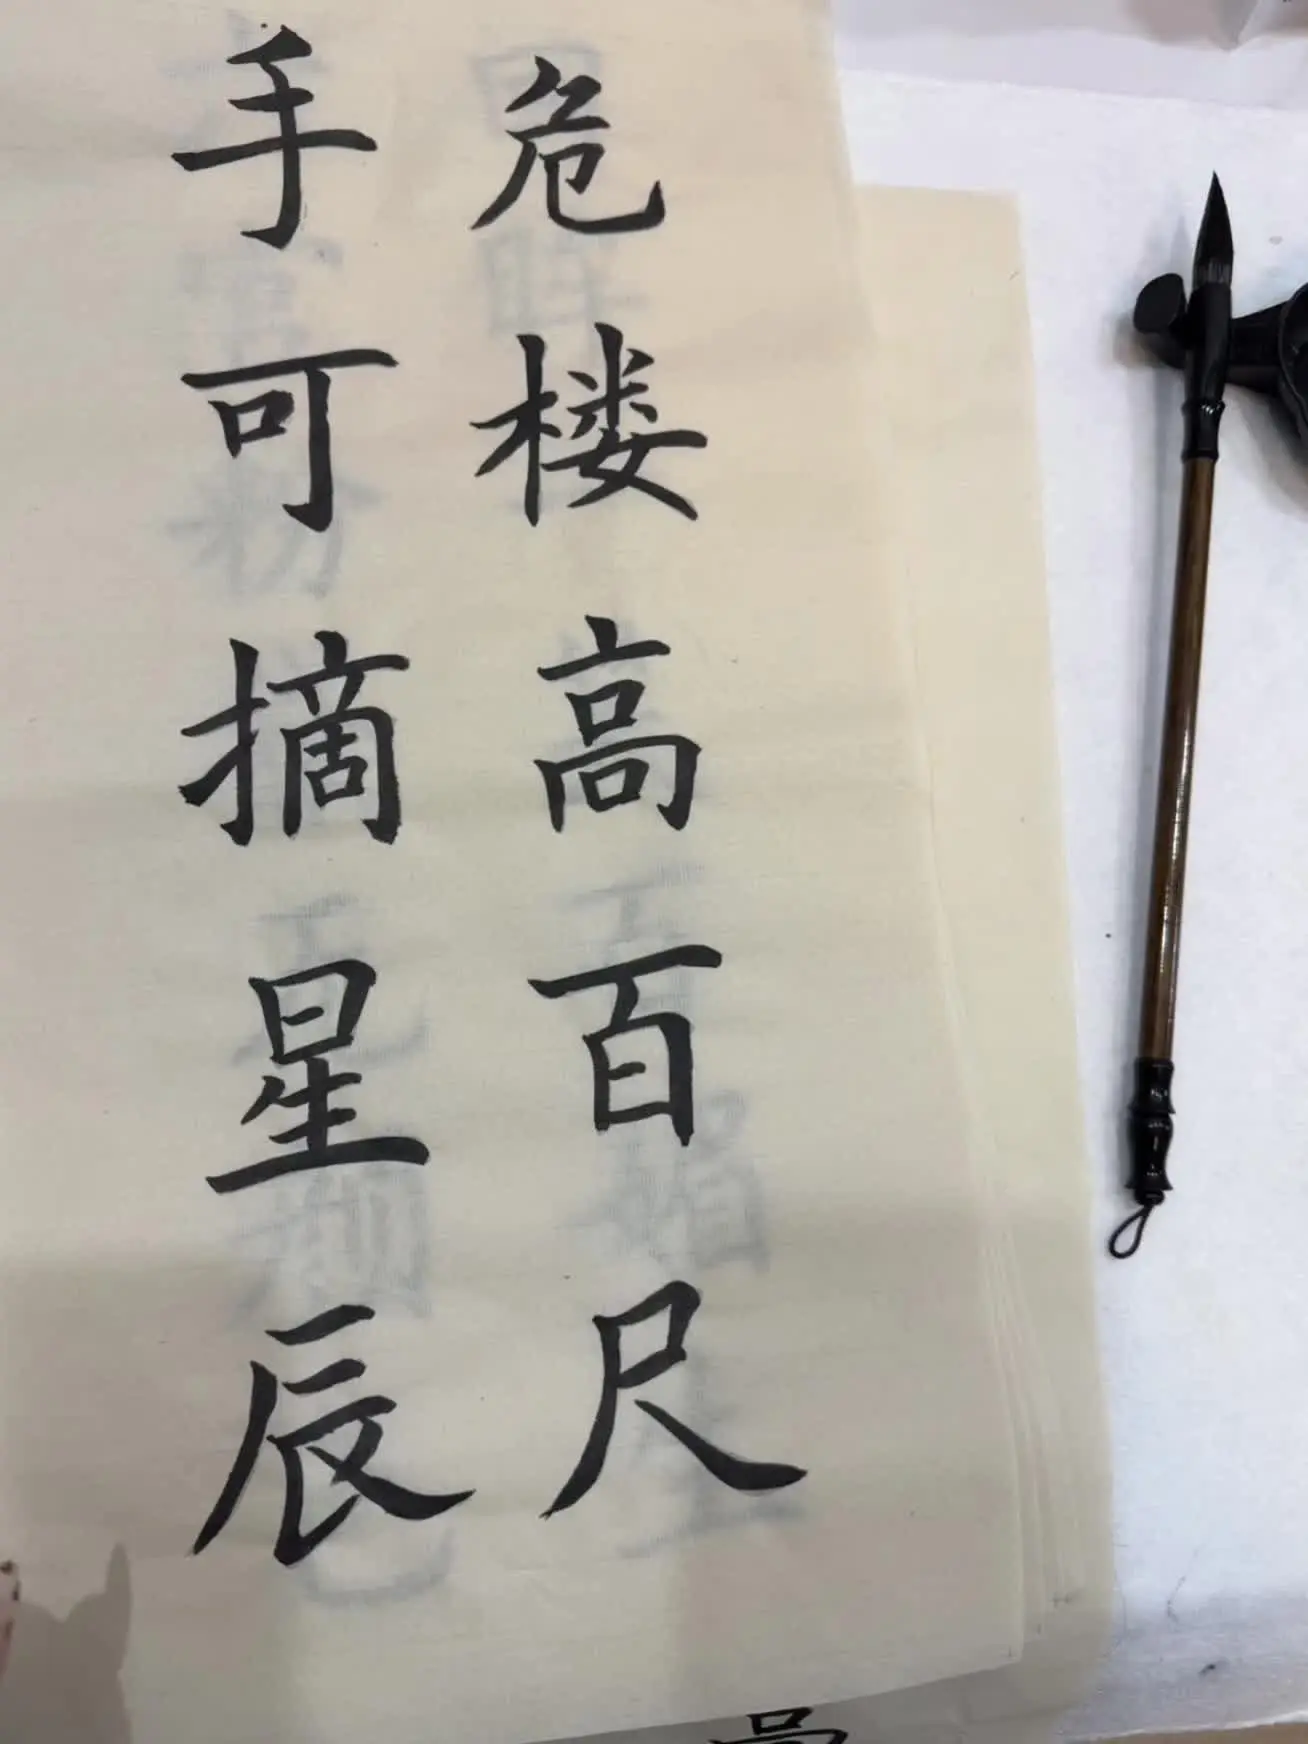 危楼高百尺
手可摘星辰